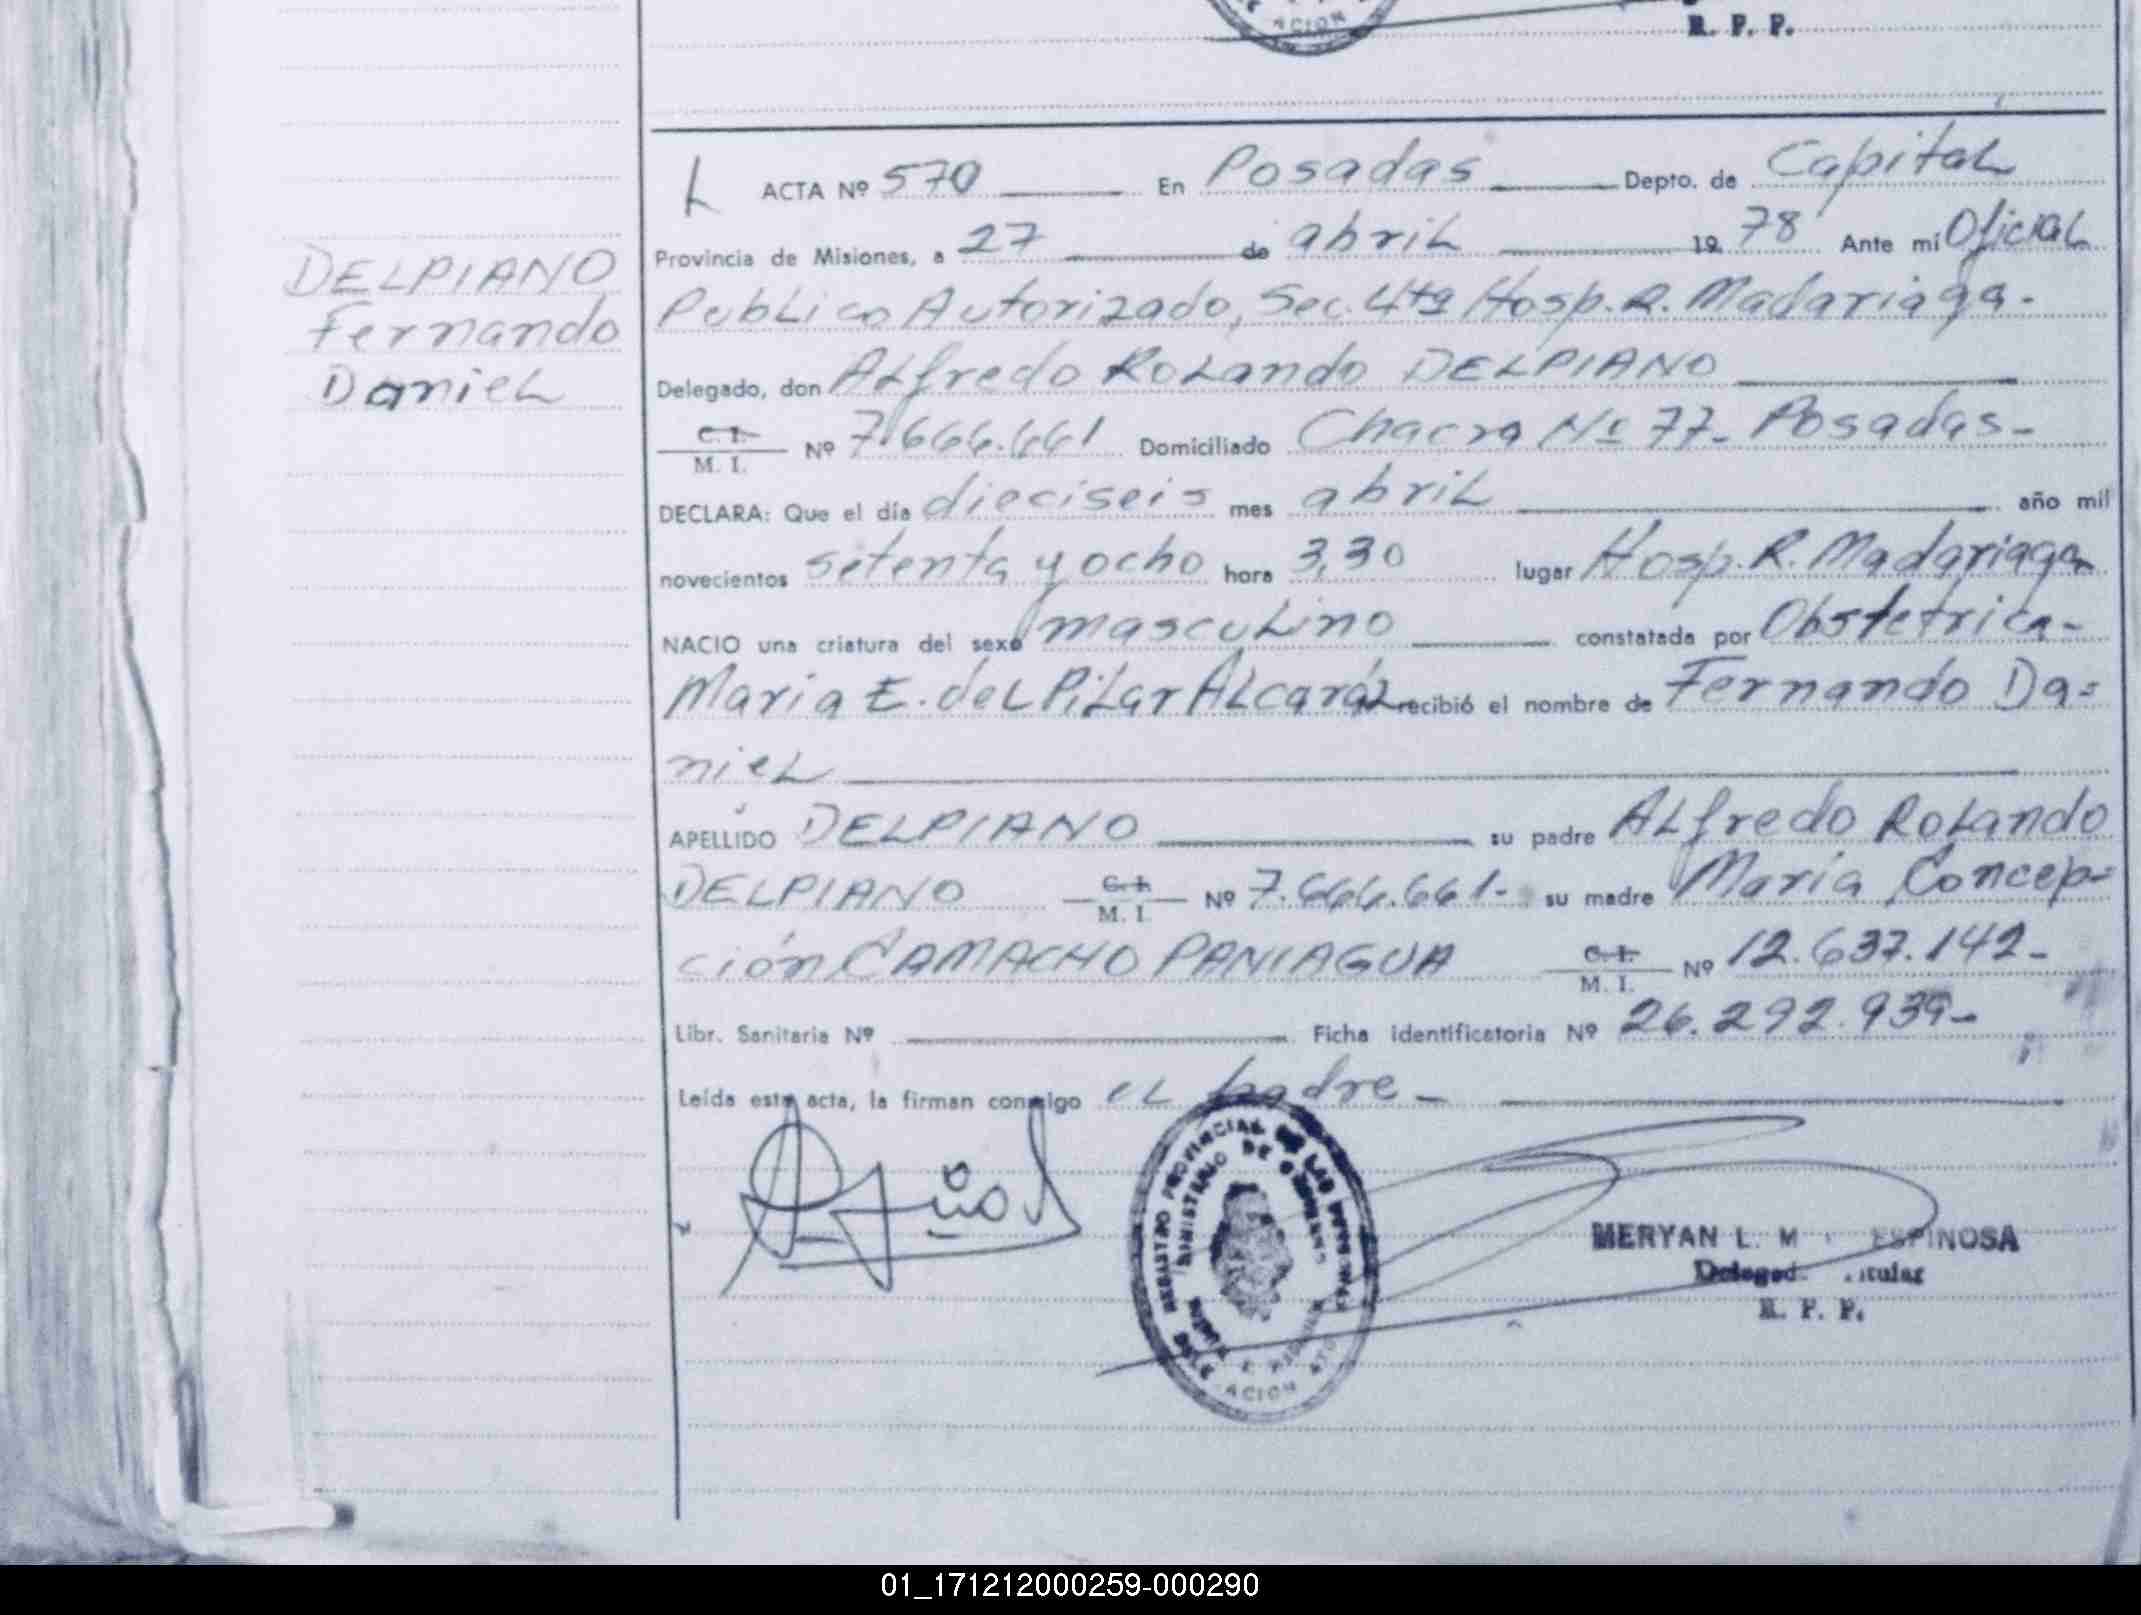 ACION
R. P. P.
L ACTA Nº 570 En Posadas Depto. de Capital
Provincia de Misiones, a 27 de abril 19 78 Ante mí Oficial
Publico Autorizado, Sec. 4ta Hosp. R. Madariaga.
Delegado, don Alfredo Rolando DELPIANO
C. I.
M. I. Nº 7.666.661 Domiciliado Chacra Nº 77- Posadas-
DECLARA: Que el día dieciseis mes abril año mil
novecientos setenta y ocho hora 3,30 lugar Hosp. R. Madariaga
NACIO una criatura del sexo masculino constatada por Obstetrica-
Maria E. del Pilar Alcaráz recibió el nombre de Fernando Da=
niel
APELLIDO DELPIANO su padre Alfredo Rolando
DELPIANO C. I. M. I. Nº 7.666.661- su madre María Concep=
ción CAMACHO PANIAGUA C. I. M. I. Nº 12.637.142-
Libr. Sanitaria Nº Ficha identificatoria Nº 26.292.939-
Leída esta acta, la firman conmigo el padre-
DELPIANO
Fernando
Daniel
REGISTRO PROVINCIAL DE LAS PERSONAS
MINISTERIO DE
ACION
MERYAN L. M ESPINOSA
R. P. P.
01_171212000259-000290